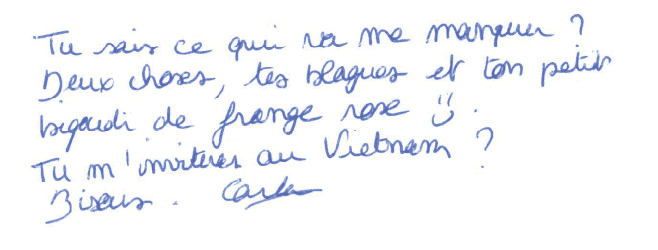 Tu sais ce qui va me manquer ?
Deux choses, tes blagues et ton petit
bigoudi de frange rose ü .
Tu m'inviteras au Vietnam ?
Bisous . Carla